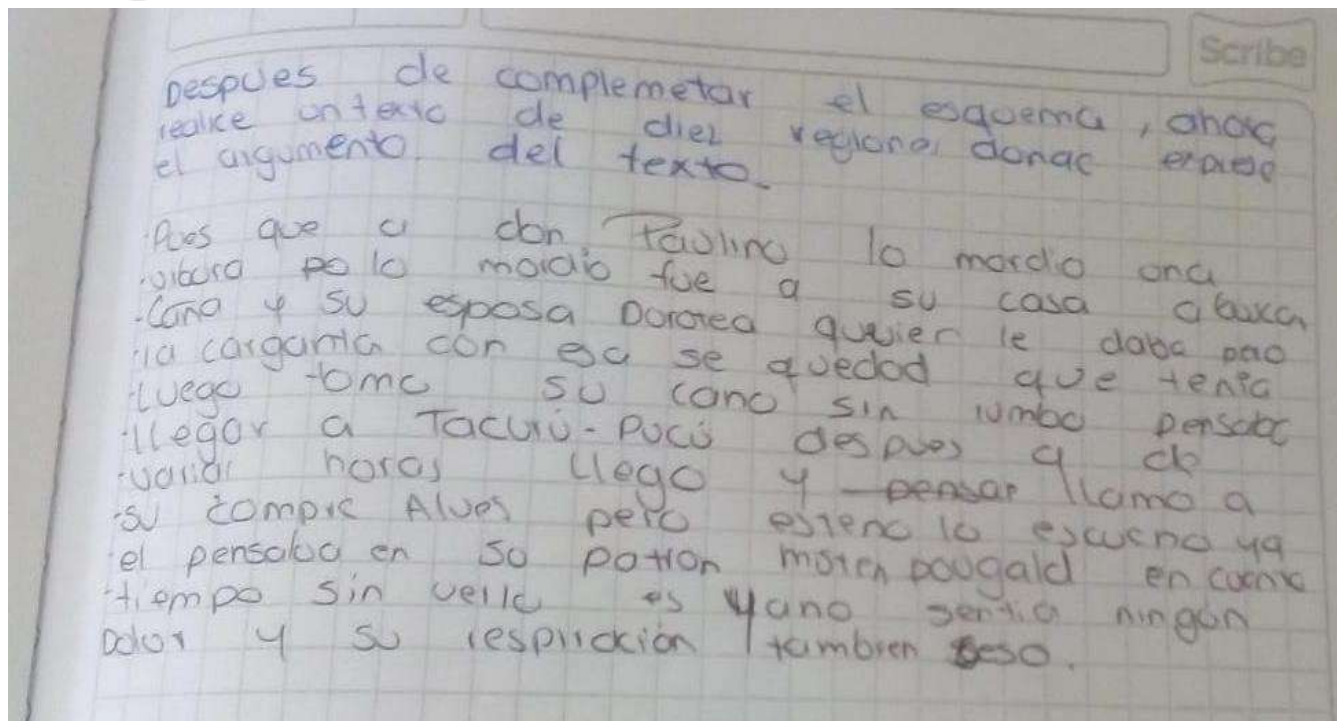 Scribe
Despues de complemetar el esquema, ahora
realice un texto de diez reglones donde
el argumento del texto.
Pues que a don Paulino lo mordio una
vibora po lo mordio fue a su casa a buxcar
Cana y su esposa Dorotea quevier le daba pao
la garganta con esa se quedad que tenia
luego tomo su cano sin rumbo pensaba
llegar a Tacurú-Pucú despues q de
varias horas llego y pensar llamo a
su compre Alves pero este no lo escucho ya
el pensaba en so patron mister Dougald en cuanto
tiempo sin verlo es yano sentia ningún
Dolor y su respiración tambien seso.